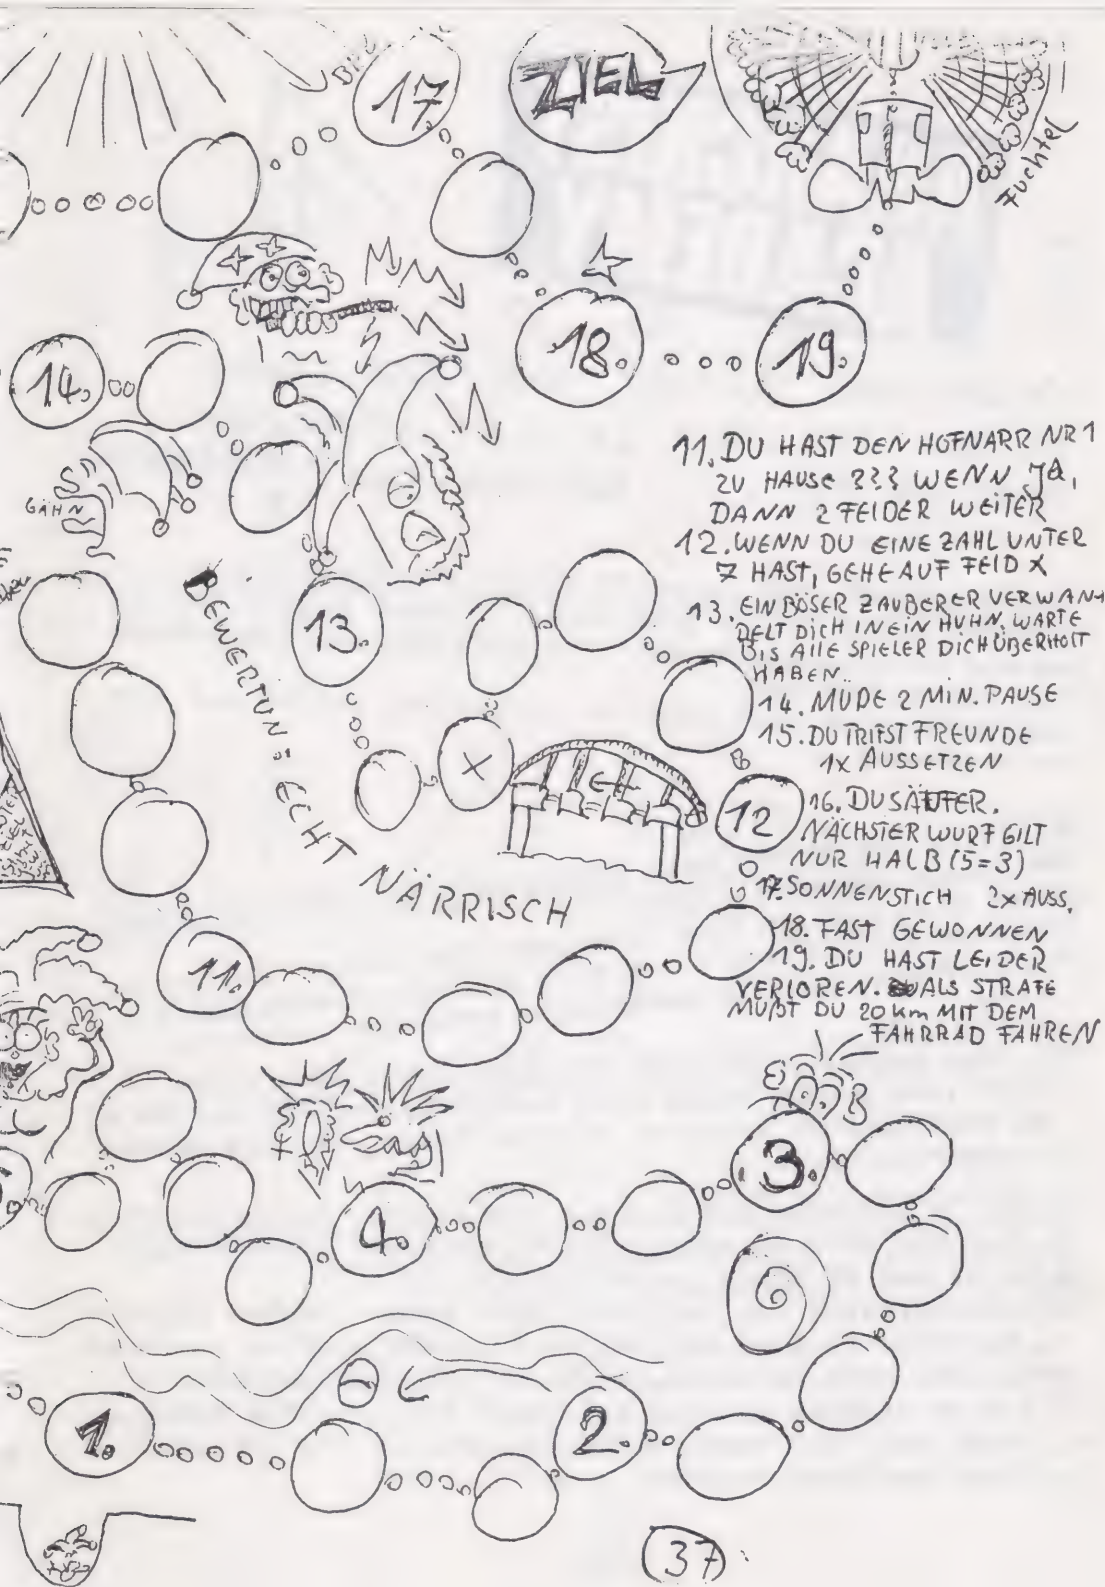 17
ZIEL
Fuchtel
18.
19.
14.
GÄHN
11. DU HAST DEN HOFNARR NR 1
ZU HAUSE ??? WENN JA,
DANN 2 FELDER WEITER
12. WENN DU EINE ZAHL UNTER
7 HAST, GEHE AUF FELD X
13. EIN BÖSER ZAUBERER VERWAN-
DELT DICH IN EIN HUHN. WARTE
BIS ALLE SPIELER DICH ÜBERHOLT
HABEN..
14. MÜDE 2 MIN. PAUSE
15. DU TRIFST FREUNDE
1X AUSSETZEN
16. DU SÄUFER.
NÄCHSTER WURF GILT
NUR HALB (5=3)
17. SONNENSTICH 2X AUSS.
18. FAST GEWONNEN
19. DU HAST LEIDER
VERLOREN. ALS STRAFE
MUßT DU 20 km MIT DEM
FAHRRAD FAHREN
13.
X
12
BEWERTUN: ECHT NÄRRISCH
11.
3.
4.
1.
2.
37